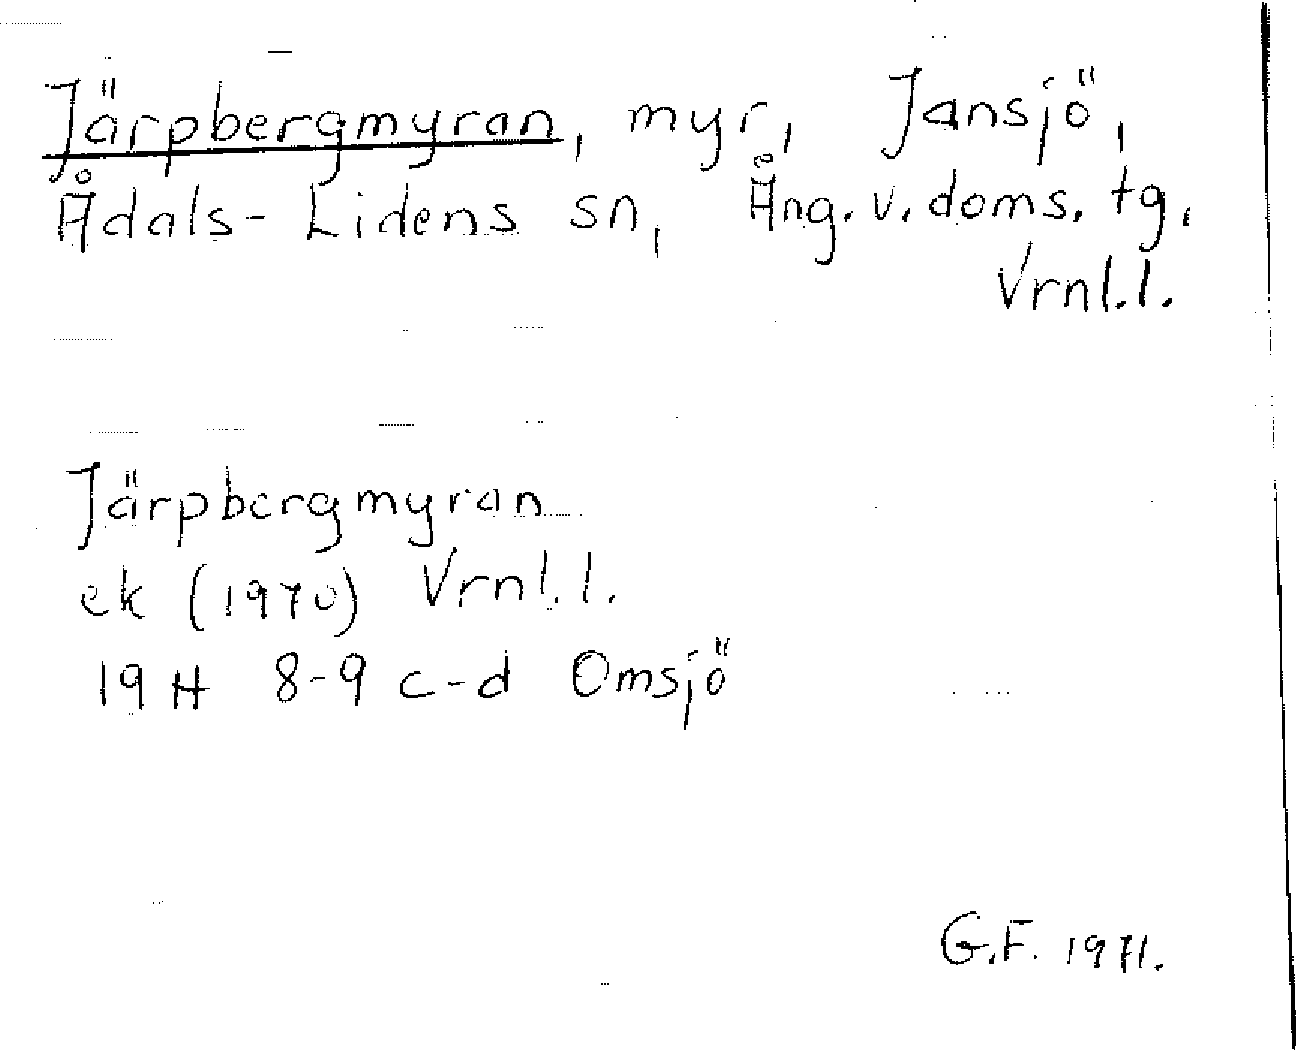 Järpbergmyran, myr, Jansjö,
Ådals-Lidens sn, Ång. v. doms. tg.
Vrnl.l.
Järpbergmyran
ek (1970) Vrnl.l.
19 H 8-9 c-d Omsjö
G.F. 1971.